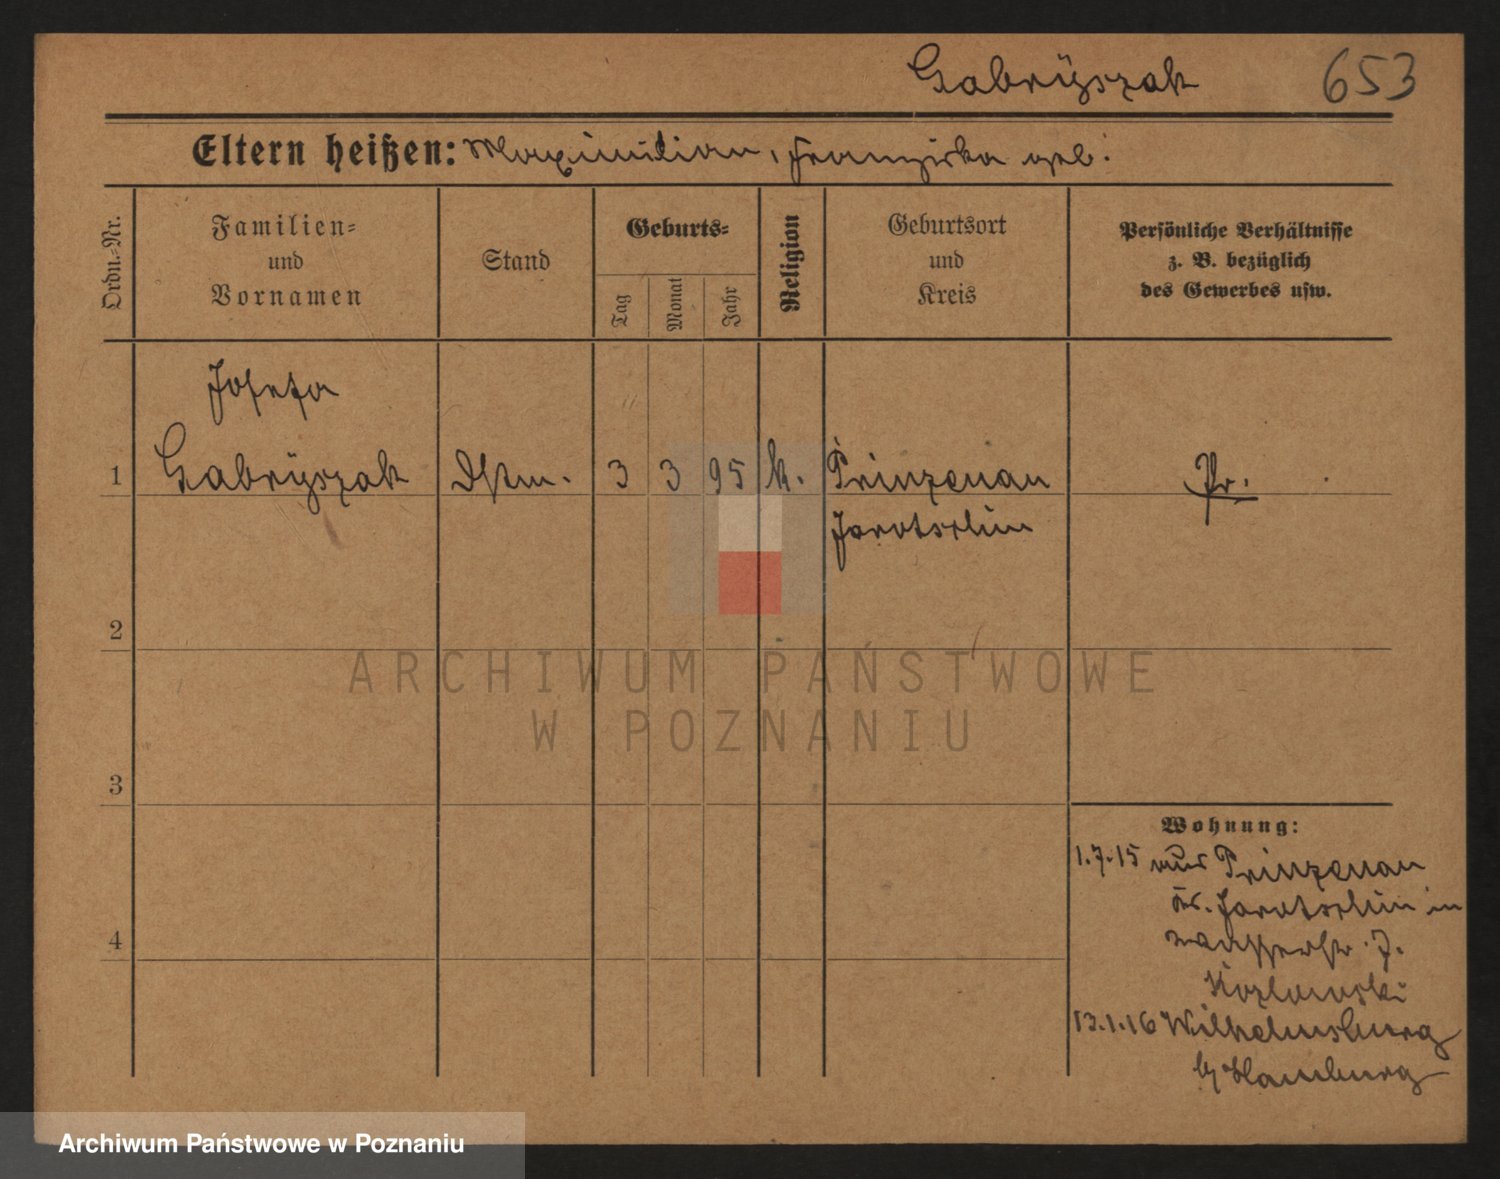 Gabryszak 653
Eltern heißen: Maximilian, Franziska geb.
Ordn.-Nr.
Familien-
und
Vornamen
Stand
Geburts-
Tag
Monat
Jahr
Religion
Geburtsort
und
Kreis
Persönliche Verhältnisse
z. B. bezüglich
des Gewerbes usw.
Josefa
1 Gabryszak Dstm. 3 3 95 k. Prinzenau Pr.
Jarotschin
2
3
4
Wohnung:
1.7.15 aus Prinzenau
Kr. Jarotschin in
Wasserstr. 7.
Kozlowski
13.1.16 Wilhelmsburg
b/ Hamburg
ARCHIWUM PAŃSTWOWE
W POZNANIU
Archiwum Państwowe w Poznaniu